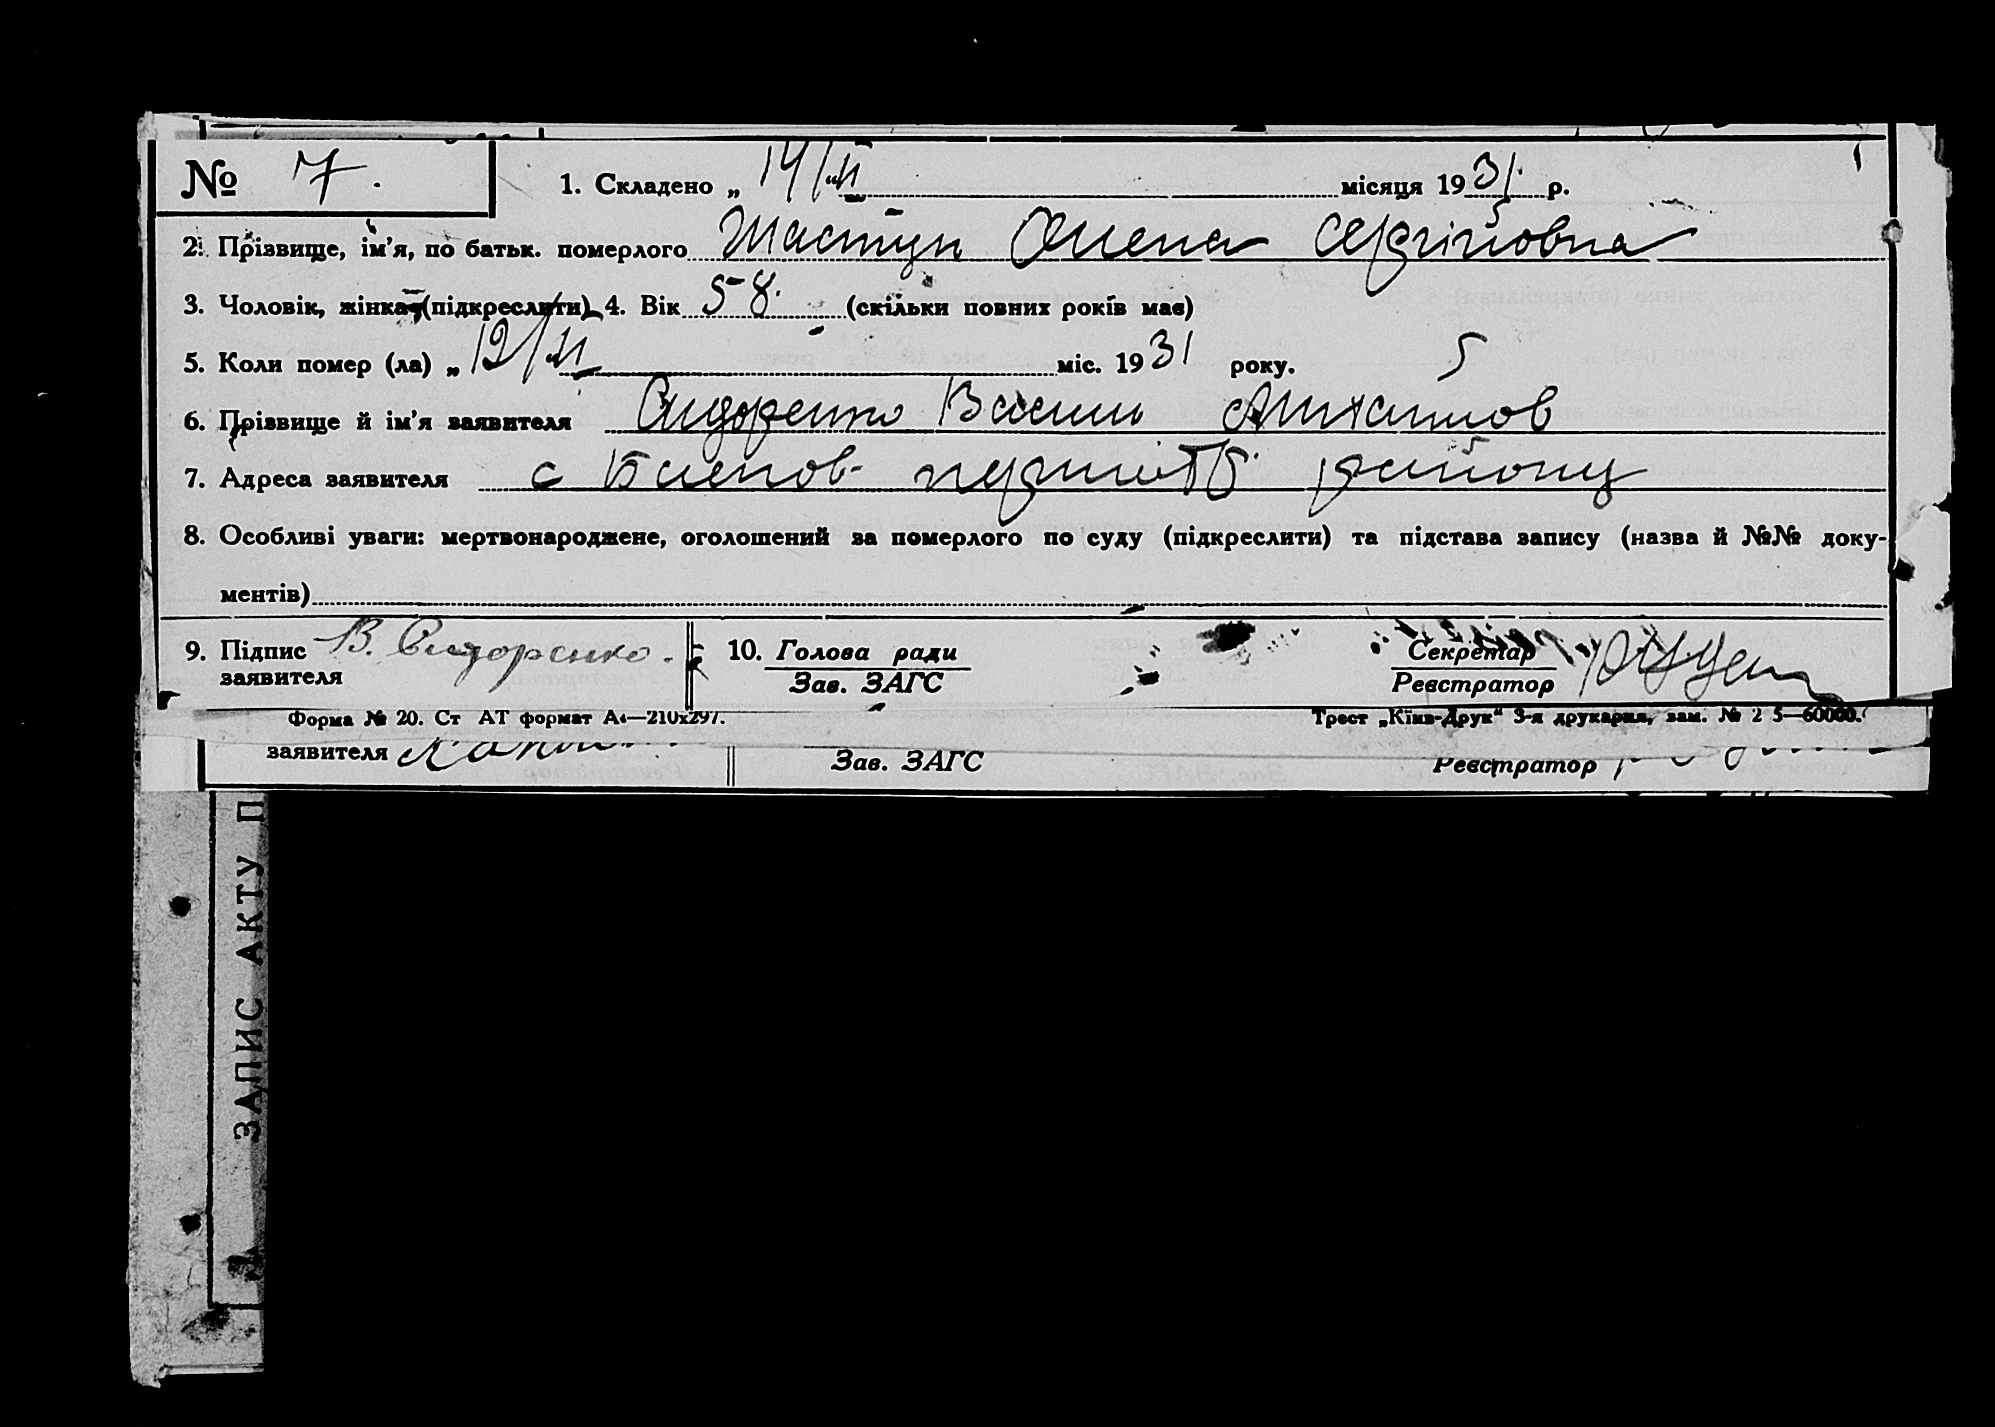 № 7.
1. Складено „ 14/II місяця 1931. р.
2. Прізвище, ім'я, по батьк. померлого Шастун Олена Сергійовна
3. Чоловік, жінка (підкреслити) 4. Вік 58. (скільки повних років має)
5. Коли помер (ла) „ 12/II міс. 1931 року.
6. Прізвище й ім'я заявителя Сидоренко Василь Михайлов
7. Адреса заявителя с району
8. Особливі уваги: мертвонароджене, оголошений за померлого по суду (підкреслити) та підстава запису (назва й №№ доку-
ментів)
9. Підпис заявителя В. Сидоренко.
10. Голова ради
Зав. ЗАГС
Секретар
Реєстратор
Форма № 20. Ст АТ формат А4—210х297.
Трест „Київ-Друк" 3-я друкарня, зам. № 2 5—60000.
заявителя
Зав. ЗАГС
Реєстратор
ЗАПИС АКТУ П